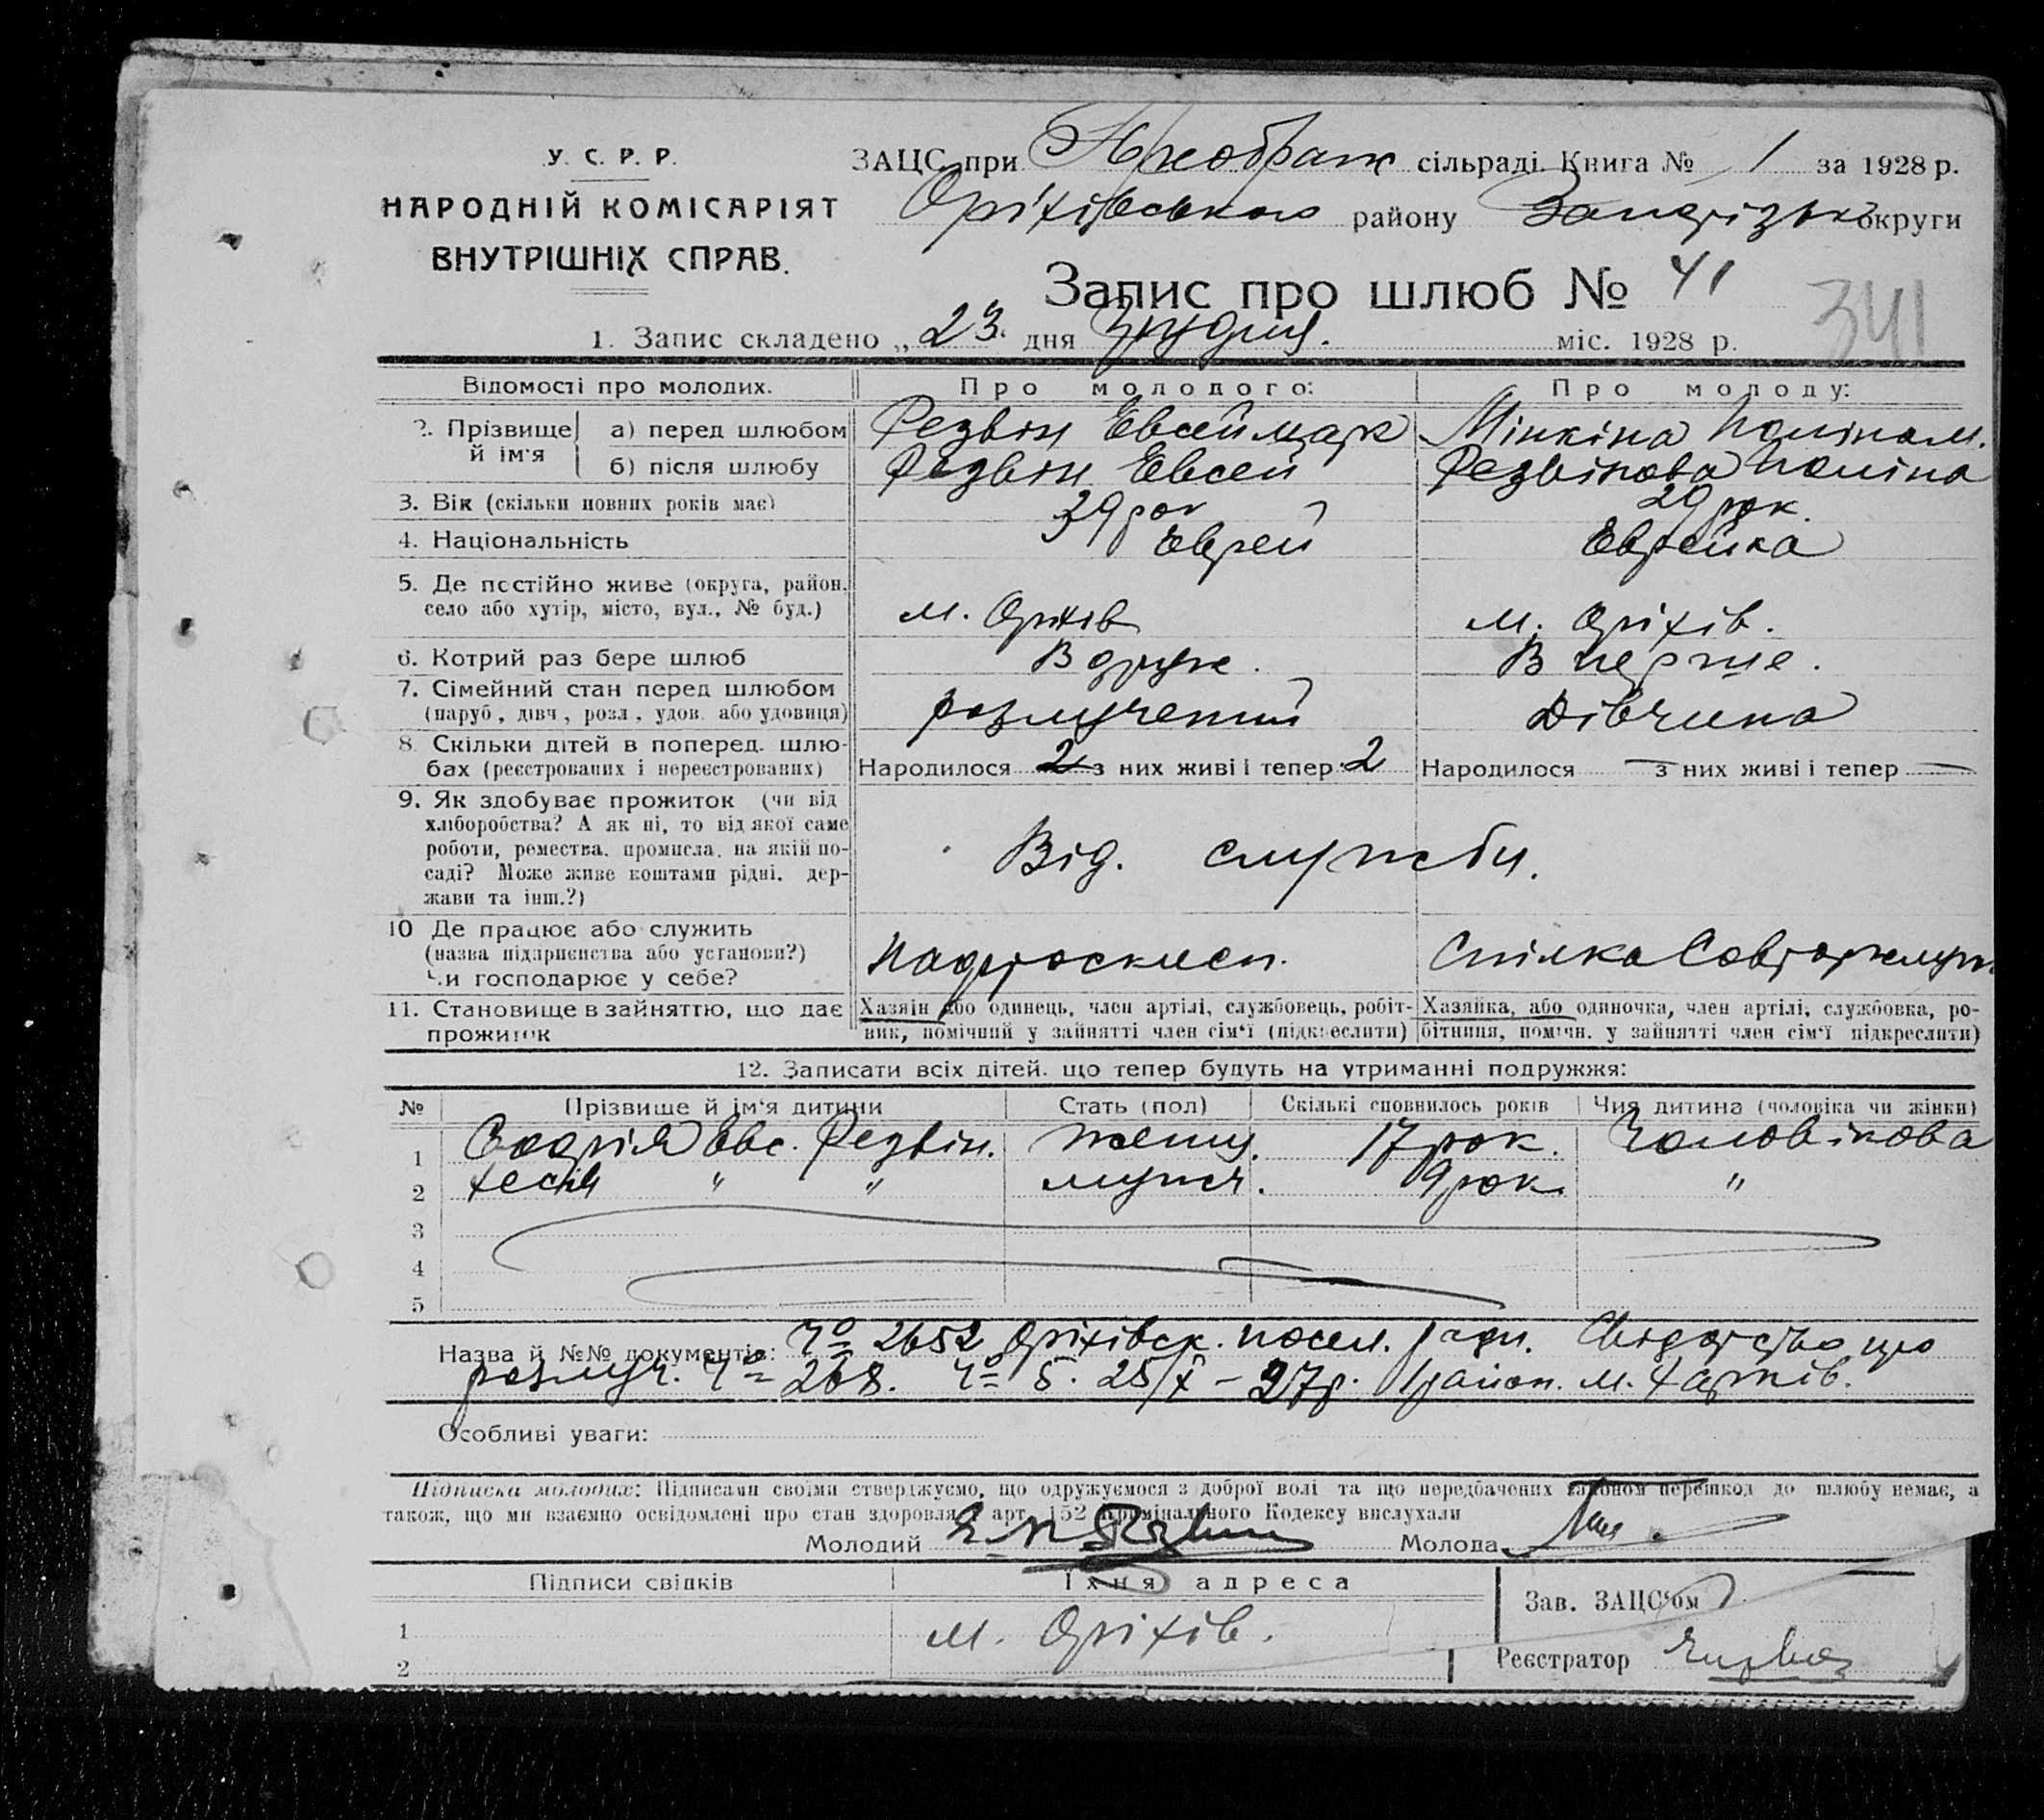 У. С. Р. Р.
НАРОДНІЙ КОМІСАРІЯТ
ВНУТРІШНІХ СПРАВ.
ЗАЦС при Преображ сільраді Книга № 1 за 1928 р.
Оріхівського району Запорізьк округи
Запис про шлюб № 41
341
1. Запис складено „ 23 “ дня Грудня. міс. 1928 р.
Відомості про молодих. Про молодого: Про молоду:
2. Прізвище й ім'я а) перед шлюбом Резвін Евсей Марк Мінкіна Поліна М.
б) після шлюбу Резвін Евсей Резвінова Поліна
3. Вік (скільки повних років має) 39 рок 29 рок.
4. Національність Еврей Еврейка
5. Де постійно живе (округа, район,
село або хутір, місто, вул., № буд.) м. Оріхів м. Оріхів.
6. Котрий раз бере шлюб Вдруге. В перше.
7. Сімейний стан перед шлюбом
(паруб., дівч., розл., удов. або удовиця) розлучений Дівчина
8. Скільки дітей в поперед. шлю-
бах (реєстрованих і нереєстрованих) Народилося 2 з них живі і тепер 2 Народилося — з них живі і тепер —
9. Як здобуває прожиток (чи від
хліборобства? А як ні, то від якої саме
роботи, ремества, промисла, на якій по-
саді? Може живе коштами рідні, дер-
жави та інш.?)
Від. служби.
10 Де працює або служить
(назва підприємства або установи?)
Чи господарює у себе?
Спілка
11. Становище в зайняттю, що дає
прожиток
Хазяїн або одинець, член артілі, службовець, робіт-
ник, помічний у зайнятті член сім'ї (підкреслити)
Хазяйка, або одиночка, член артілі, службовка, ро-
бітниця, помічн. у зайнятті член сім'ї підкреслити)
12. Записати всіх дітей, що тепер будуть на утриманні подружжя:
№ Прізвище й ім'я дитини Стать (пол) Скількі сповнилось років Чия дитина (чоловіка чи жінки)
1 Евс. Резвін. 17 рок. Чоловікова
2 " " мужч. 9 рок. "
3
4
5
Назва й №№ документів: № 2652 Оріхівск. посел. ради. Свідоцтво про
розлуч. № 268. № 5. 25/X – 27 р. район. м. Харків.
Особливі уваги:
Підписка молодих: Підписами своїми стверджуємо, що одружуємося з доброї волі та що передбачених законом перешкод до шлюбу немає, а
також, що ми взаємно освідомлені про стан здоровля і арт. 152 Кримінального Кодексу вислухали
Молодий Молода
Підписи свідків Їхня адреса
Зав. ЗАЦС'ом
1 м. Оріхів.
2
Реєстратор